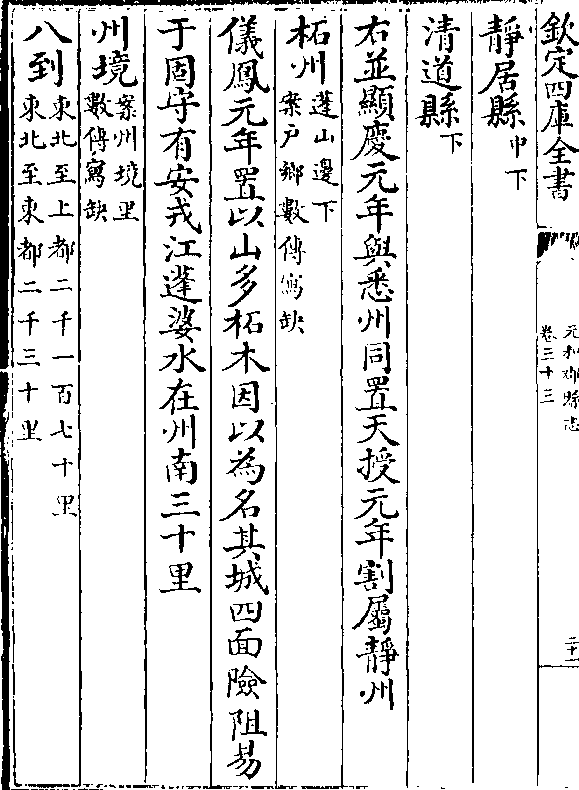 欽定四庫全書
元和郡縣志
卷三十三
二十一
靜居縣中下
清道縣下
右並顯慶元年與悉州同置天授元年割屬靜州
柘州蓬山邊下
案戶鄉數傳寫缺
儀鳳元年置以山多柘木因以為名其城四面險阻易
于固守有安戎江蓬婆水在州南三十里
州境案州境里
數傳寫缺
八到東北至上都二千一百七十里
東北至東都二千三十里